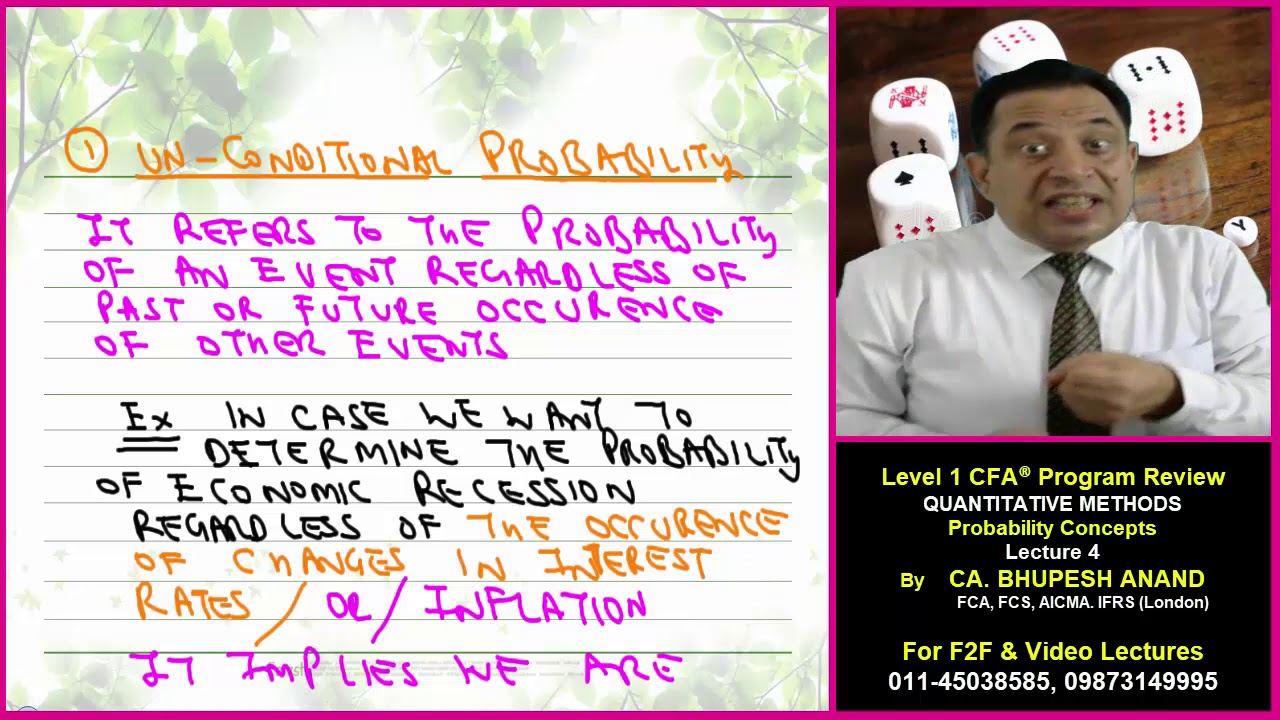 ① UN-CONDITIONAL PROBABILITY
IT REFERS TO THE PROBABILITY
OF AN EVENT REGARDLESS OF
PAST OR FUTURE OCCURENCE
OF OTHER EVENTS
Ex IN CASE WE WANT TO
DETERMINE THE PROBABILITY
OF ECONOMIC RECESSION
REGARDLESS OF THE OCCURENCE
OF CHANGES IN INTEREST
RATES / OR / INFLATION
IT IMPLIES WE ARE
Level 1 CFA® Program Review
QUANTITATIVE METHODS
Probability Concepts
Lecture 4
By CA. BHUPESH ANAND
FCA, FCS, AICMA. IFRS (London)
For F2F & Video Lectures
011-45038585, 09873149995